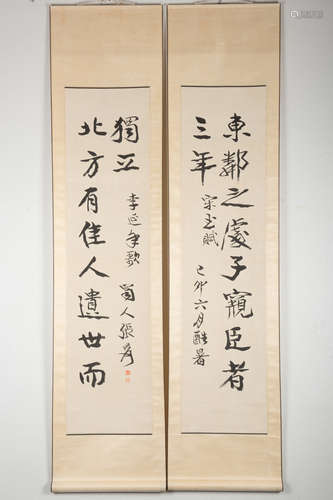 東鄰之處子窺臣者
三年
宋玉賦
己卯六月酷暑
北方有佳人遺世而
獨立
李延年歌
蜀人張爰